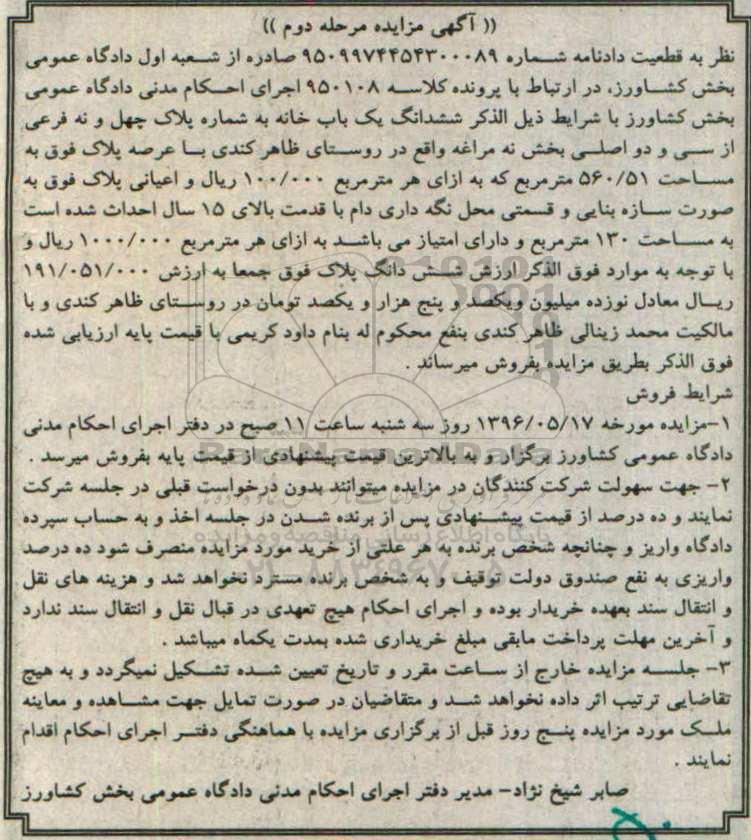 (( آگهی مزایده مرحله دوم ))
نظر به قطعیت دادنامه شماره ۹۵۰۹۹۷۴۴۵۴۳۰۰۰۸۹ صادره از شعبه اول دادگاه عمومی
بخش کشاورز، در ارتباط با پرونده کلاسه ۹۵۰۱۰۸ اجرای احکام مدنی دادگاه عمومی
بخش کشاورز با شرایط ذیل الذکر ششدانگ یک باب خانه به شماره پلاک چهل و نه فرعی
از سی و دو اصلی بخش نه مراغه واقع در روستای ظاهر کندی با عرصه پلاک فوق به
مساحت ۵۶۰/۵۱ مترمربع که به ازای هر مترمربع ۱۰۰/۰۰۰ ریال و اعیانی پلاک فوق به
صورت سازه بنایی و قسمتی محل نگه داری دام با قدمت بالای ۱۵ سال احداث شده است
به مساحت ۱۳۰ مترمربع و دارای امتیاز می باشد به ازای هر مترمربع ۱۰۰۰/۰۰۰ ریال و
با توجه به موارد فوق الذکر ارزش شش دانگ پلاک فوق جمعا به ارزش ۱۹۱/۰۵۱/۰۰۰
ریال معادل نوزده میلیون ویکصد و پنج هزار و یکصد تومان در روستای ظاهر کندی و با
مالکیت محمد زینالی ظاهر کندی بنفع محکوم له بنام داود کریمی با قیمت پایه ارزیابی شده
فوق الذکر بطریق مزایده بفروش میرساند .
شرایط فروش
۱-مزایده مورخه ۱۳۹۶/۰۵/۱۷ روز سه شنبه ساعت ۱۱ صبح در دفتر اجرای احکام مدنی
دادگاه عمومی کشاورز برگزار و به بالاترین قیمت پیشنهادی از قیمت پایه بفروش میرسد .
۲- جهت سهولت شرکت کنندگان در مزایده میتوانند بدون درخواست قبلی در جلسه شرکت
نمایند و ده درصد از قیمت پیشنهادی پس از برنده شدن در جلسه اخذ و به حساب سپرده
دادگاه واریز و چنانچه شخص برنده به هر علتی از خرید مورد مزایده منصرف شود ده درصد
واریزی به نفع صندوق دولت توقیف و به شخص برنده مسترد نخواهد شد و هزینه های نقل
و انتقال سند بعهده خریدار بوده و اجرای احکام هیچ تعهدی در قبال نقل و انتقال سند ندارد
و آخرین مهلت پرداخت مابقی مبلغ خریداری شده بمدت یکماه میباشد .
۳- جلسه مزایده خارج از ساعت مقرر و تاریخ تعیین شده تشکیل نمیگردد و به هیچ
تقاضایی ترتیب اثر داده نخواهد شد و متقاضیان در صورت تمایل جهت مشاهده و معاینه
ملک مورد مزایده پنج روز قبل از برگزاری مزایده با هماهنگی دفتر اجرای احکام اقدام
نمایند .
صابر شیخ نژاد- مدیر دفتر اجرای احکام مدنی دادگاه عمومی بخش کشاورز